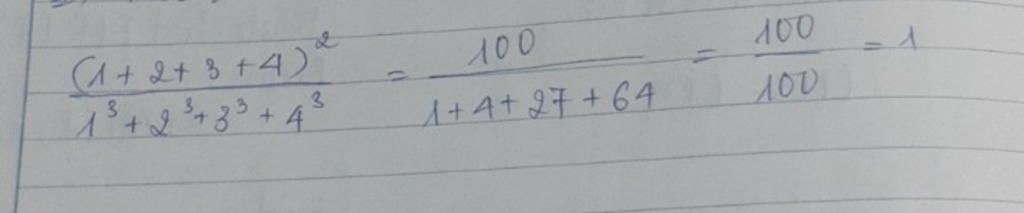 (1+2+3+4)² / 1³+2³+3³+4³ = 100 / 1+4+27+64 = 100 / 100 = 1